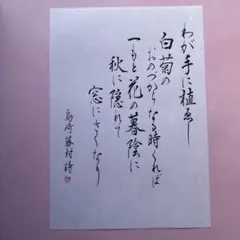 わが手に植ゑし
白菊の
おのづからなる時くれば
一もと花の暮陰に
秋に隠れて
窓にさくなり
島崎藤村詩